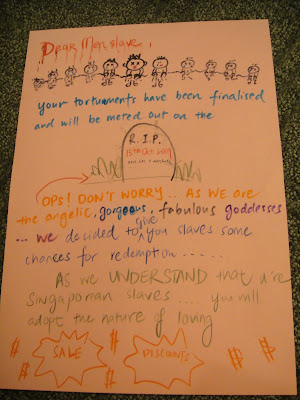 Dear Men slave,
your tortuments have been finalised
and will be meted out on the
R.I.P.
13th Oct 2009
OPS! DON'T WORRY... AS WE ARE
the angelic, gorgeous, fabulous goddesses
... we decided to give you slaves some
chances for redemption.....
AS we UNDERSTAND that u're
Singaporean slaves .... you will
adopt the nature of loving
$ SALE $ DISCOUNTS $ $